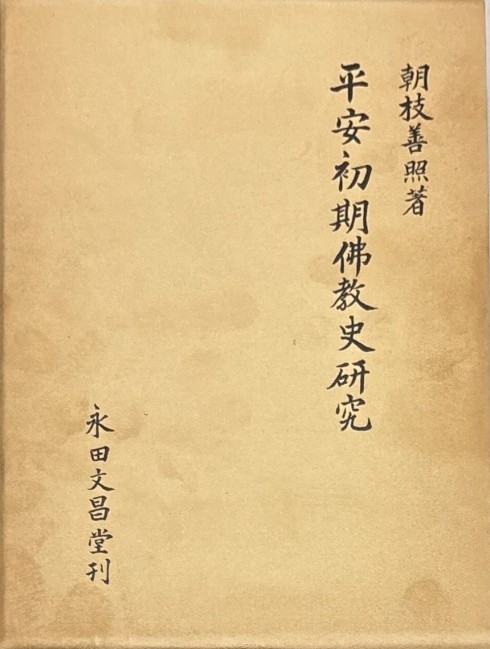 朝枝善照著
平安初期佛教史研究
永田文昌堂刊